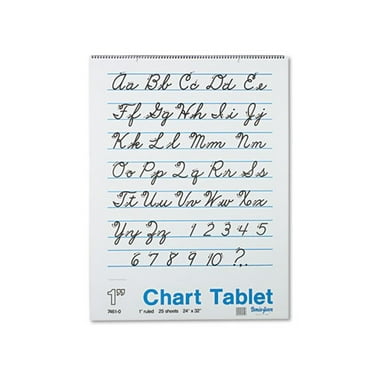 Aa Bb Cc Dd Ee
Ff Gg Hh Ii Jj
Kk Ll Mm Nn
Oo Pp Qq Rr Ss
Tt Uu Vv Ww Xx
Yy Zz 1 2 3 4 5
6 7 8 9 10 ?.
1" Chart Tablet
7461-0 1" ruled 25 sheets 24" x 32"